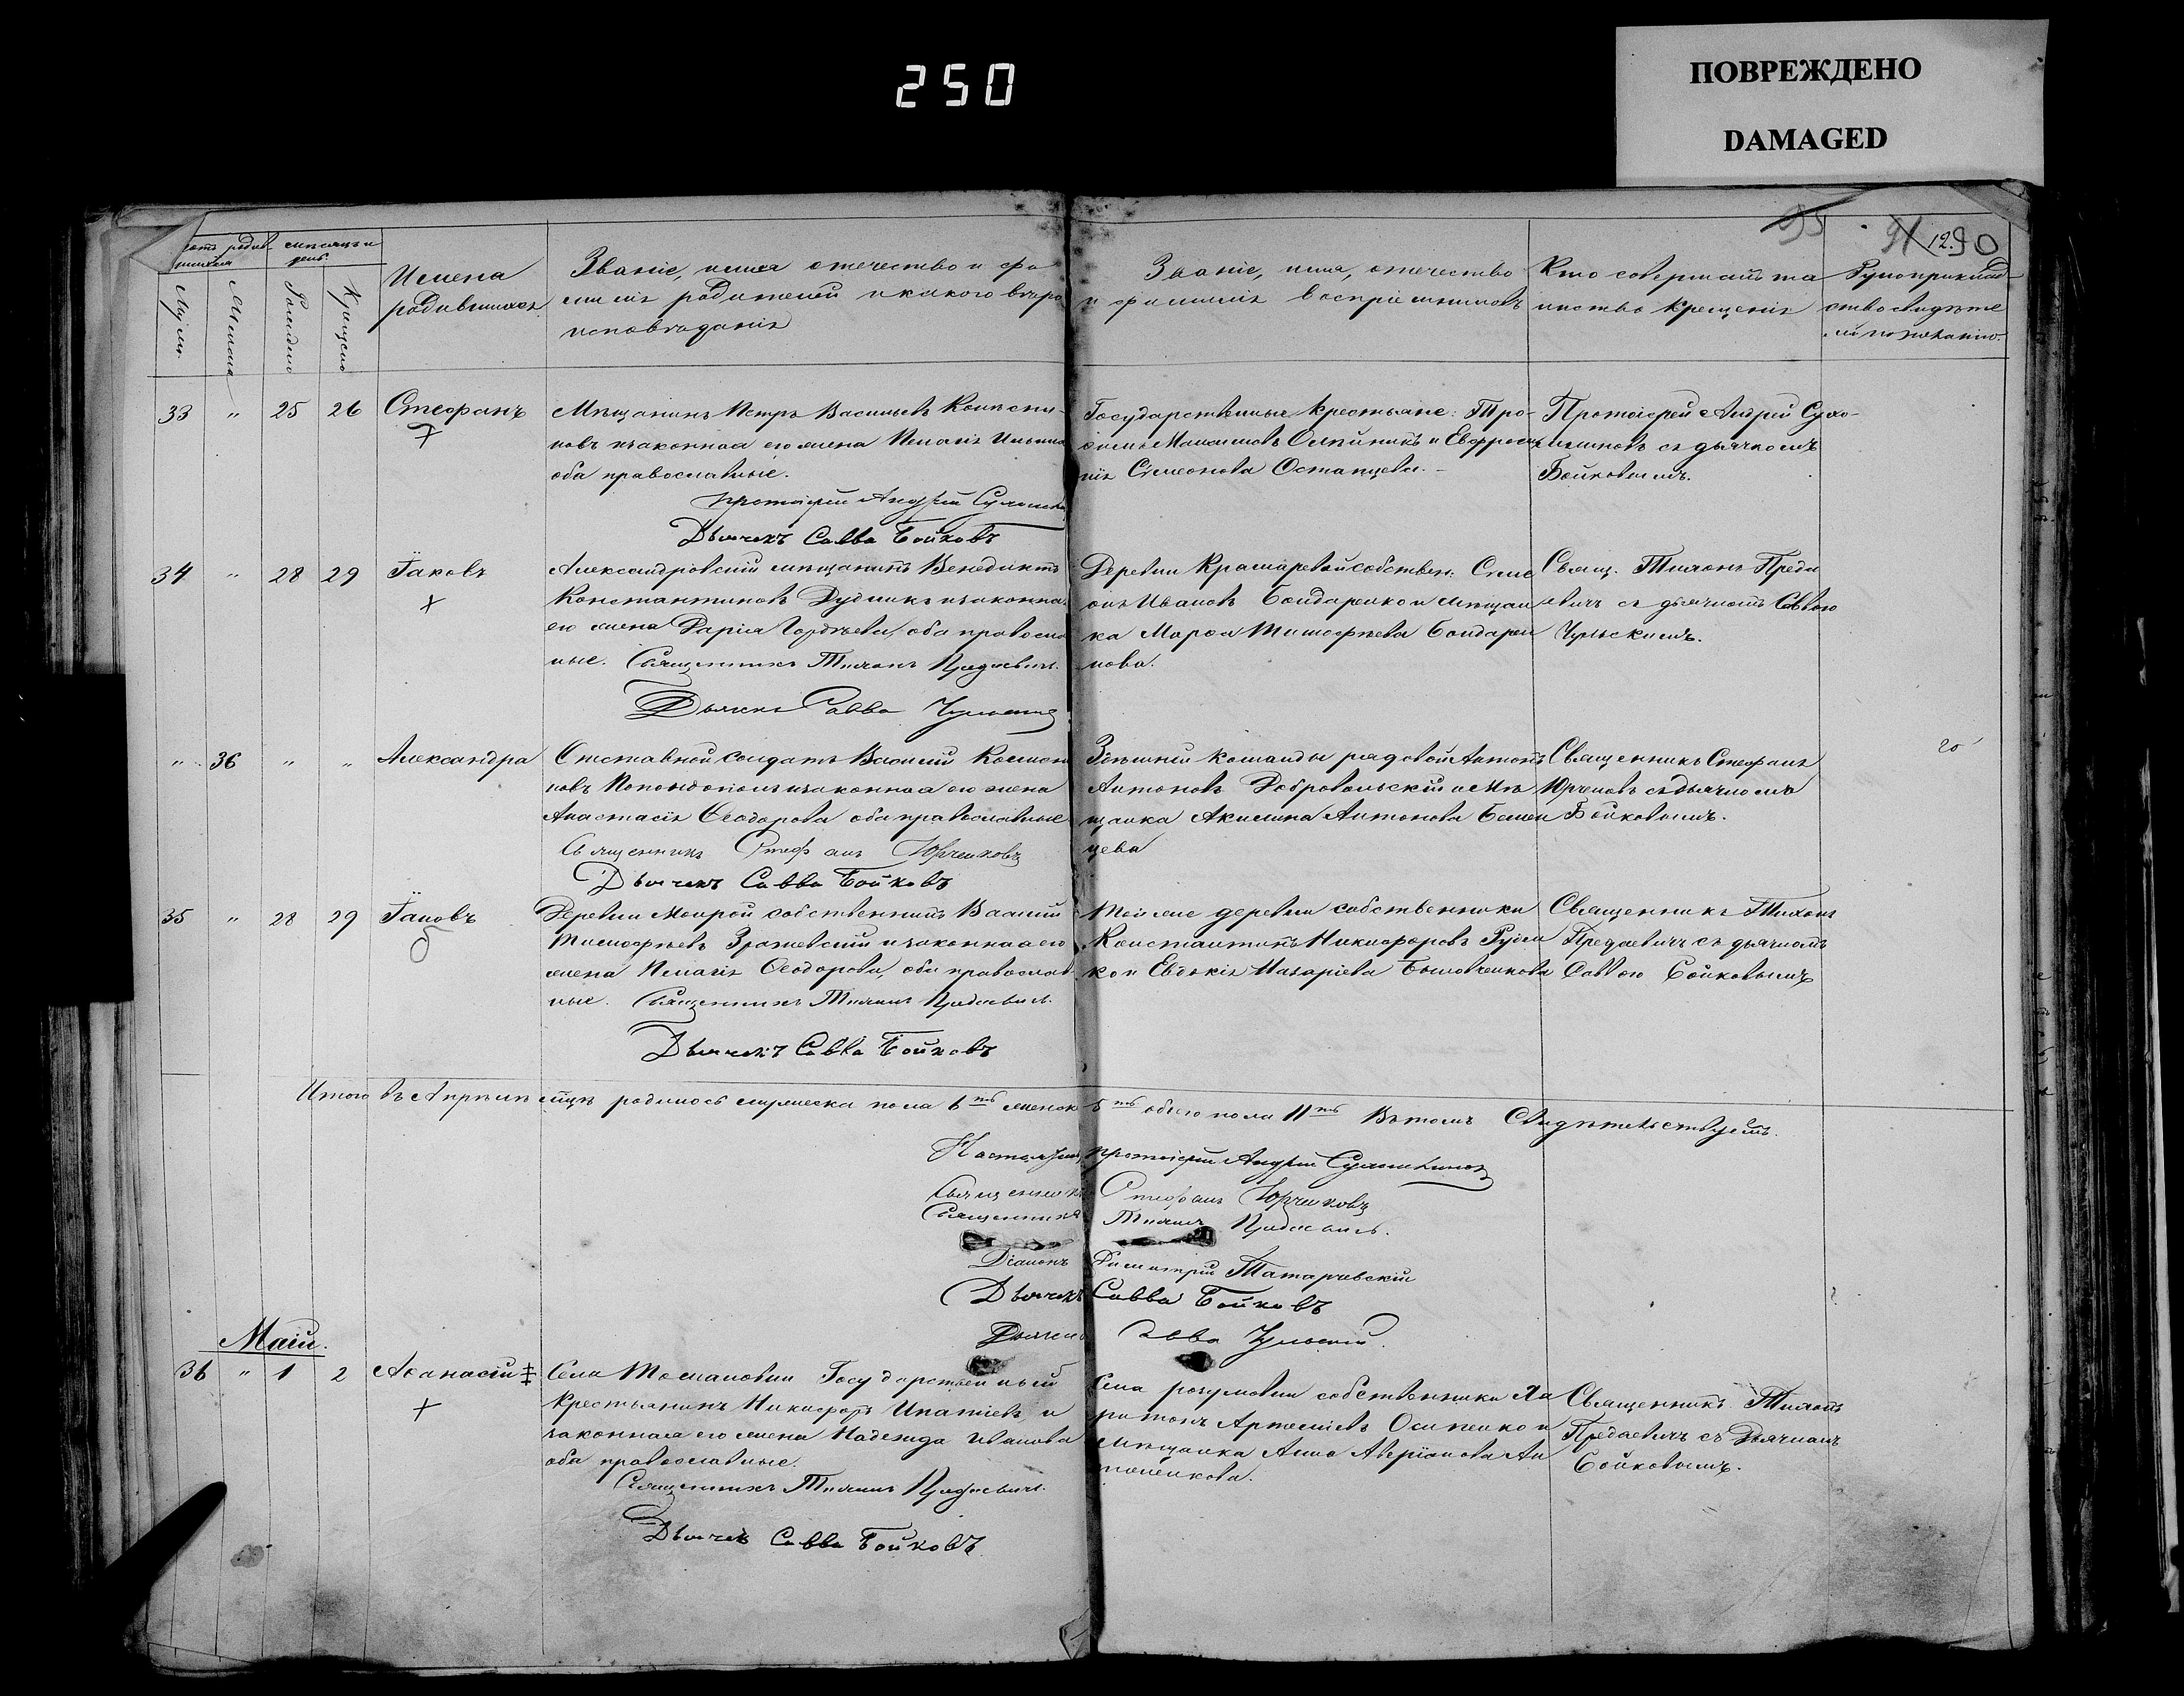 250
ПОВРЕЖДЕНО
DAMAGED
95 91 12. 90
Счетъ родив- мѣсяцъ и
шихся день.
Муж. Женска Рождено Крещено
Имена
родившихся
Званіе, имена отечество и фа
миліи родителей и какого вѣро
исповѣданія
Званіе, имя, отечество
и фамилія воспріемниковъ
Кто совершалъ та
инство крещенія
Рукоприклад
ство свидѣте
лей по желанію.
33 " 25 26 Стефанъ
Мѣщанинъ Петръ Васильевъ
новъ и законная его жена Пелагія Ильина
оба православные.
протоіерей Андрей
Дьячекъ Савва Бойковъ
Государственные крестьяне: Тро-
фимъ Максимовъ Олейникъ и Евфроси
нія Симеонова Остапцева.
Протоіерей Андрей Сухо-
млиновъ съ дьячкомъ
Бойковымъ.
34 " 28 29 Іаковъ
Александровскій мѣщанинъ Венедиктъ
Константиновъ Дудникъ и законная
его жена Дарія Гордѣева, оба православ
ные. Священникъ Тихонъ Предаевичъ.
Дьячекъ Савва
Деревни Крамаревой собствен: Симе
онъ Ивановъ Бондаренко и мѣщан
ка Марфа Тимофѣева Бондарен
кова.
Свящ. Тихонъ Преда
евичъ съ дьячкомъ Саввою
Чульскимъ.
" 36 " " Александра
Отставной солдатъ Василій
новъ и законная его жена
Анастасія Ѳеодорова оба православные
Священникъ Стефанъ Юрченковъ
Дьячекъ Савва Бойковъ
Здѣшней команды рядовой Антонъ
Антоновъ Добровольскій и Мѣ
щанка Акилина Антонова
цева
Священникъ Стефанъ
Юрченковъ съ дьячкомъ
Бойковымъ.
35 " 28 29 Іаковъ
Деревни Мокрой собственникъ Василій
Тимофѣевъ и законная его
жена Пелагія Ѳеодорова, оба православ
ные. Священникъ Тихонъ Предаевичъ.
Дьячекъ Савва Бойковъ
Той же деревни собственники
Константинъ Никифоровъ
ко и Евдокія Назаріева
Священникъ Тихонъ
Предаевичъ съ дьячкомъ
Саввою Бойковымъ
Итого въ Апрѣлѣ м҃цѣ родилось мужеска пола 6ть женска 5ть обоего пола 11ть Въ томъ Свидѣтельствуемъ.
Настоятель протоіерей Андрей Сухомлиновъ
Священникъ Стефанъ Юрченковъ
Священникъ Тихонъ Предаевичъ.
Діаконъ Димитрій Татарневскій
Дьячекъ Савва Бойковъ
Дьячекъ Савва Чульскій.
Маій.
36 " 1 2 Аѳанасій
Села Томаковки Государственный
Крестьянинъ Никифоръ Ипатіевъ и
законная его жена Надежда Иванова
оба православные.
Священникъ Тихонъ Предаевичъ.
Дьячекъ Савва Бойковъ
Села розумовки собственникъ Ха
ритонъ Артеміевъ Осипенко и
мѣщанка Анна Аверіанова Ан
Священникъ Тихонъ
Предаевичъ съ Дьячкомъ
Бойковымъ.